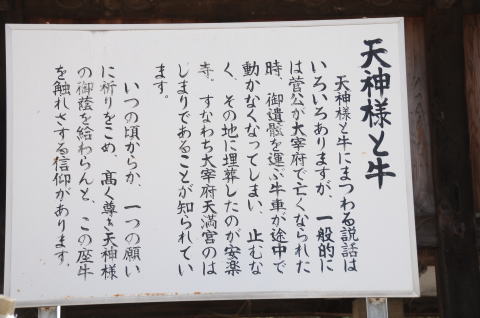 天神様と牛
天神様と牛にまつわる説話は
いろいろありますが、一般的に
は菅公が大宰府で亡くなられた
時、御遺骸を運ぶ牛車が途中で
動かなくなってしまい、止むな
く、その地に埋葬したのが安楽
寺。すなわち大宰府天満宮のは
じまりであることが知られてい
ます。
いつの頃からか、一つの願い
に祈りをこめ、高く尊き天神様
の御蔭を給わらんと、この座牛
を触れさする信仰があります。